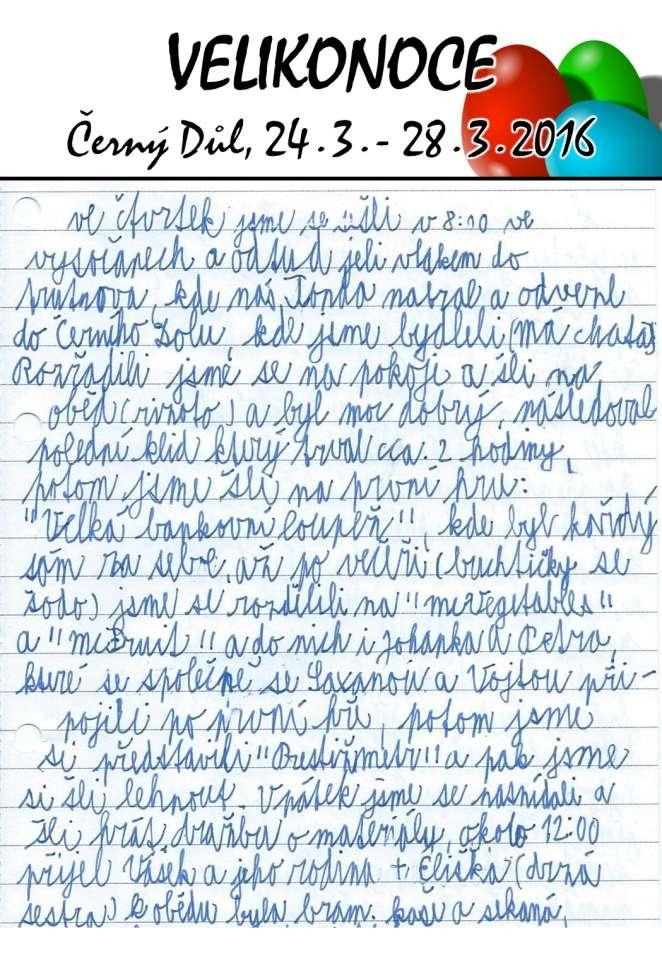 VELIKONOCE
Černý Důl, 24.3.- 28.3.2016
ve čtvrtek jsme se sešli v 8:00 ve
vysočanech a odtud jeli vlakem do
trutnova, kde nás Tonda nabral a odvezl
do Černého Dolu, kde jsme bydleli (má chata)
Rozřadili jsme se na pokoje a šli na
oběd (rizoto) a byl moc dobrý, následoval
polední klid který trval cca. 2 hodiny,
potom jsme šli na první hru:
"Velká bankovní loupež", kde byl každý
sám za sebe, až po večeři (buchtičky se
šodo) jsme se rozdělili na "mcVegetables"
a "mcFruit" a do nich i Johanka a Petra,
které se společně se Saxanou a Vojtou při-
pojili po první hře, potom jsme
si představili "Prestižmetr" a pak jsme
si šli lehnout. V pátek jsme se nasnídali a
šli hrát dražba o materiály, okolo 12:00
přijel Vašek a jeho rodina + Eliška (drzá
sestra) k obědu byla bram. kaše a sekaná,